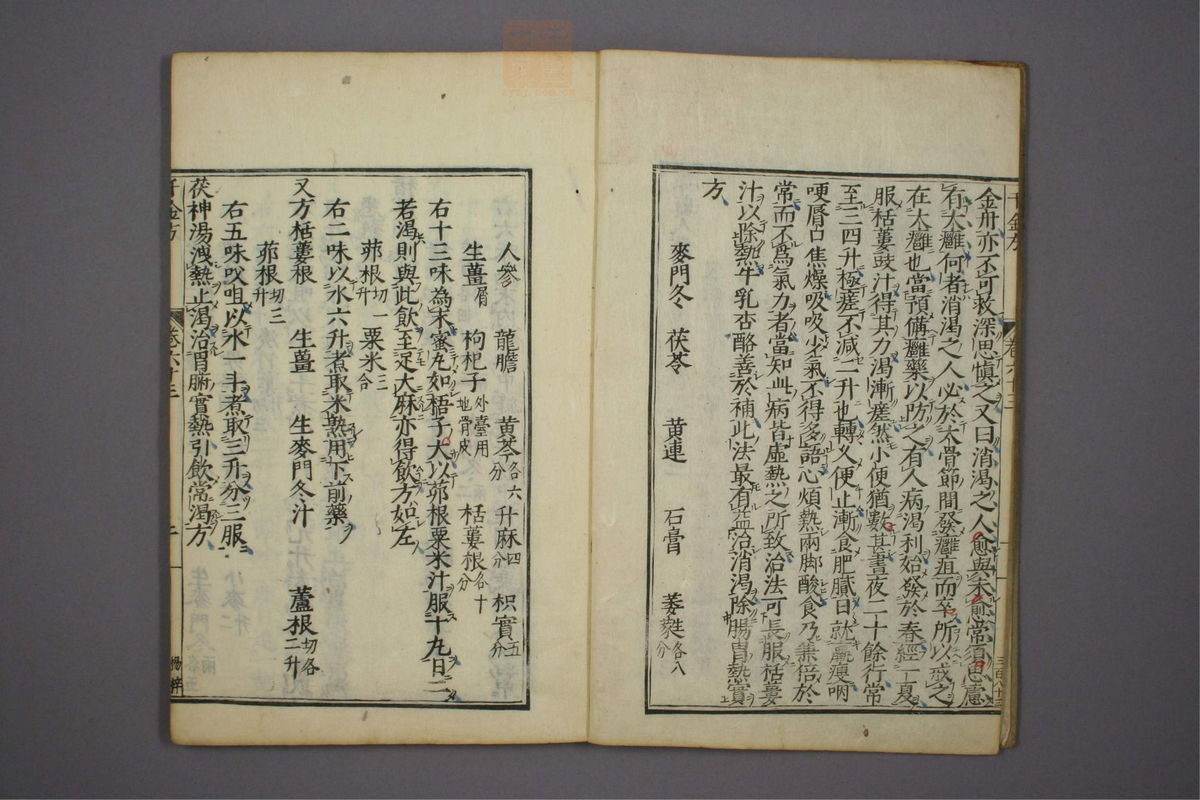 金丹亦不可救深思慎之又曰消渴之人愈與未愈常須思慮
有大癰何者消渴之人必於大骨節間發癰疽而卒所以戒之
在大癰也當預備癰藥以防之有人病渴利始發於春經一夏
服栝蔞豉汁得其力渴漸瘥然小便猶數甚晝夜二十餘行常
至三四升極瘥不減二升也轉久便止漸食肥膩日就羸瘦咽
哽脣口焦燥吸吸少氣不得多語心煩熱兩脚酸食乃兼倍於
常而不爲氣力者當知此病皆虛熱之所致治法可長服栝蔞
汁以除熱牛乳杏酪善於補此法最有益治消渴除腸胃熱實
方
麥門冬 茯苓 黄連 石膏 萎蕤各八分
人參 龍膽 黄芩各六分 升麻四分 枳實五分
生薑屑 枸杞子外臺用地骨皮 栝蔞根各十分
右十三味為末蜜丸如梧子大以茆根粟米汁服十丸日二
若渴則與此飲至足大麻亦得飲方如左
茆根切一升 粟米三合
右二味以水六升煮取米熟用下前藥
又方栝蔞根 生薑 生麥門冬汁 蘆根切各二升
茆根切三升
右五味㕮咀以水一斗煮取三升分三服
茯神湯洩熱止渴治胃腑實熱引飲常渴方
千金方
卷六十三